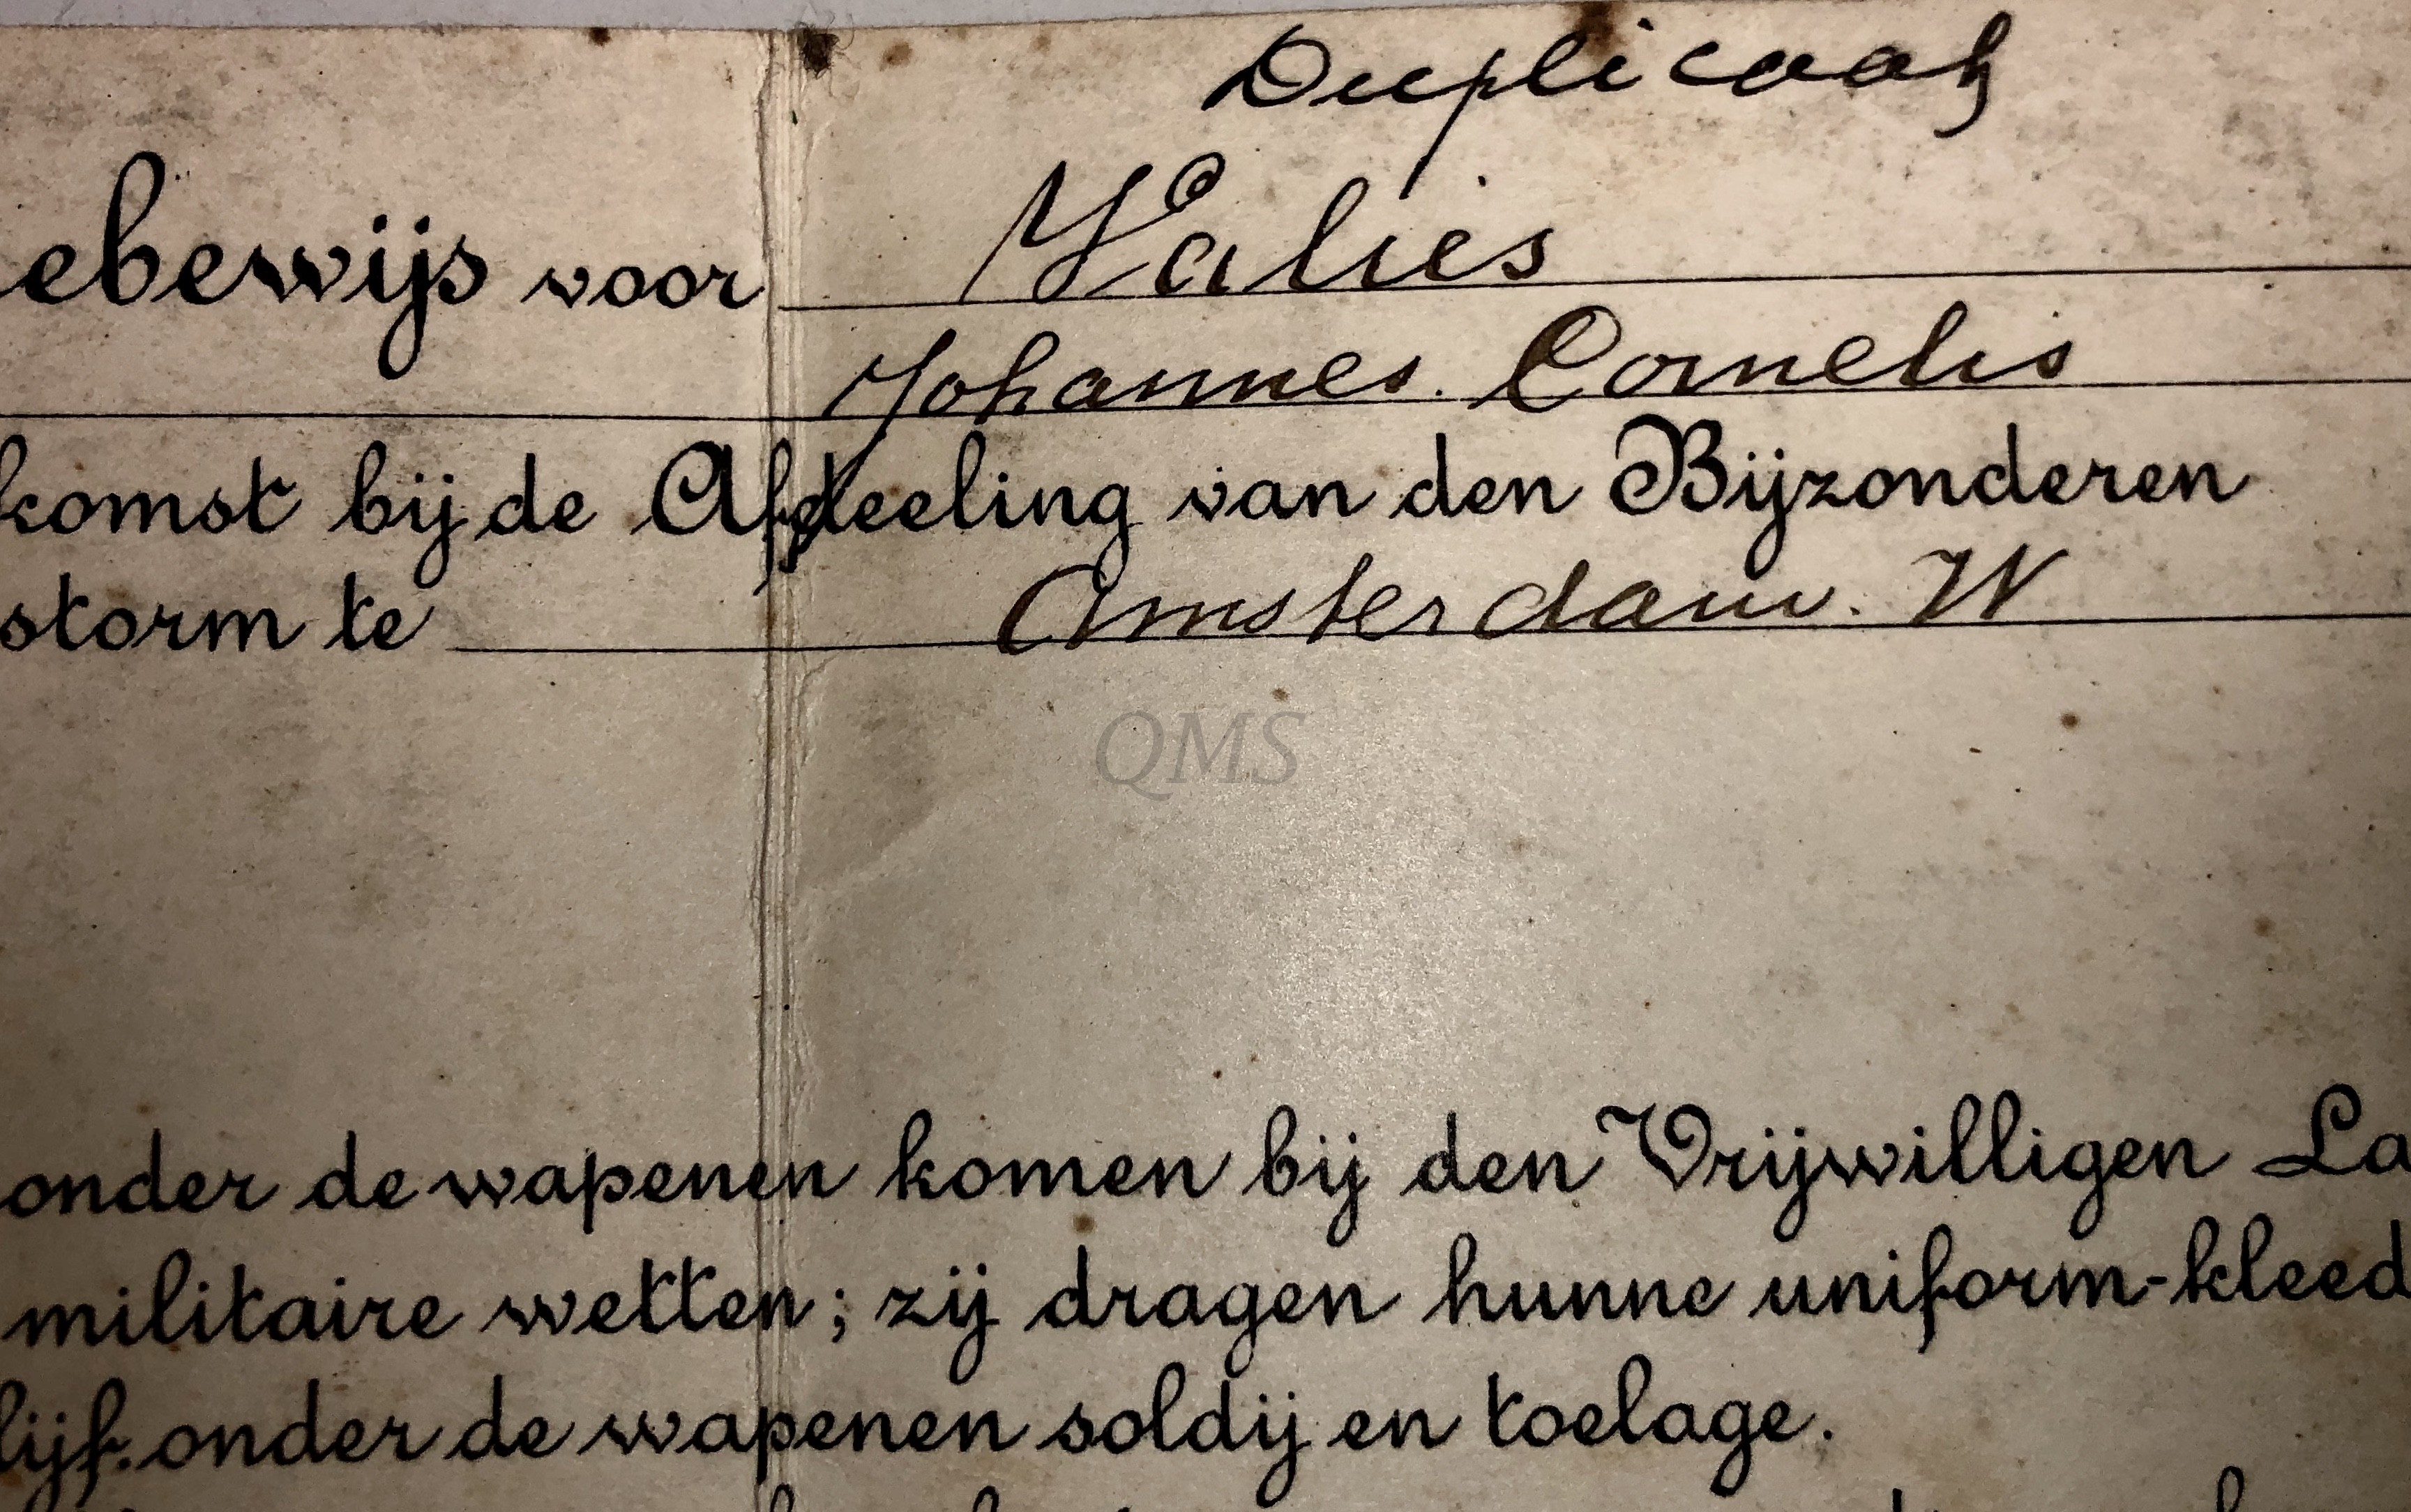 Duplicaat
ebewijs voor Valies
Johannes. Cornelis
komst bij de Afdeeling van den Bijzonderen
storm te Amsterdam. W
QMS
onder de wapenen komen bij den Vrijwilligen La
militaire wetten; zij dragen hunne uniform-kleed
lijf. onder de wapenen soldij en toelage.